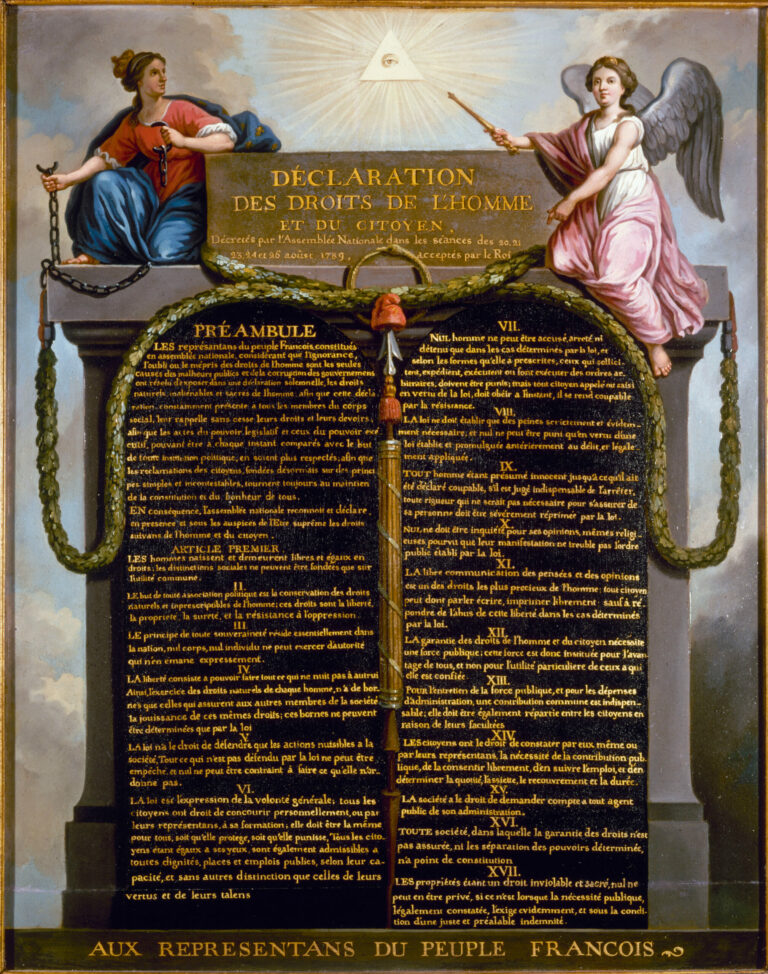 DÉCLARATION
DES DROITS DE L'HOMME
ET DU CITOYEN,
Décretés par l'Assemblée Nationale dans les séances des 20, 21
23, 24 et 26 aoûst 1789, acceptés par le Roi
PRÉAMBULE
LES représantans du peuple François, constitués
en assemblée nationale, considérant que l'ignorance,
l'oubli ou le mépris des droits de l'homme sont les seules
causes des malheurs publics et de la corruption des gouvernemens
ont résolu d'exposer dans une déclaration solemnelle, les droits
naturels, inaliénables et sacrés de l'homme, afin que cette décla
ration, constamment présente a tous les membres du corps
social, leur rappelle sans cesse leurs droits et leurs devoirs,
afin que les actes du pouvoir legislatif et ceux du pouvoir exé
cutif, pouvant être à chaque instant comparés avec le but
de toute institution politique, en soient plus respectés; afin que
les reclamations des citoyens, fondées désormais sur des princi
pes simples et incontestables, tournent toujours au maintien
de la constitution et du bonheur de tous.
EN conséquence, l'assemblée nationale reconnoit et déclare
en presence et sous les auspices de l'Etre suprême les droits
suivans de l'homme et du citoyen.
ARTICLE PREMIER
LES hommes naissent et demeurent libres et égaux en
droits; les distinctions sociales ne peuvent être fondées que sur
l'utilité commune.
II.
LE but de toute association politique est la conservation des droits
naturels et inprescriptibles de l'homme; ces droits sont la liberté,
la propriete, la sureté, et la résistance à l'oppression.
III.
LE principe de toute souveraineté réside essentiellement dans
la nation, nul corps, nul individu ne peut exercer d'autorité
qui n'en émane expressement.
IV.
LA liberté consiste a pouvoir faire tout ce qui ne nuit pas à autrui
Ainsi, l'exercice des droits naturels de chaque homme, n'a de bor
nes que celles qui assurent aux autres membres de la société
la jouissance de ces mêmes droits; ces bornes ne peuvent
être déterminées que par la loi
V.
LA loi n'a le droit de défendre que les actions nuisibles a la
société. Tout ce qui n'est pas défendu par la loi ne peut être
empêché, et nul ne peut être contraint à faire ce qu'elle n'or
donne pas.
VI.
LA loi est l'expression de la volonté générale; tous les
citoyens ont droit de concourir personnellement, ou par
leurs représentans, à sa formation; elle doit être la même
pour tous, soit qu'elle protege, soit qu'elle punisse, Tous les cito
yens étant égaux a ses yeux, sont également admissibles a
toutes dignités, places et emplois publics, selon leur ca-
pacité, et sans autres distinction que celles de leurs
vertus et de leurs talens
VII.
NUL homme ne peut être accusé, arreté ni
détenu que dans les cas déterminés par la loi, et
selon les formes qu'elle a prescrites, ceux qui sollici
tent, expédient, exécutent ou font exécuter des ordres ar-
bitraires, doivent être punis; mais tout citoyen appelé ou saisi
en vertu de la loi, doit obéir a l'instant, il se rend coupable
par la résistance.
VIII.
LA loi ne doit établir que des peines strictement et évidem-
ment nécessaire, et nul ne peut être puni qu'en vertu d'une
loi établie et promulguée antérierement au délit, et légale-
ment appliquée.
IX.
TOUT homme étant présumé innocent jusqu'à ce qu'il ait
été déclaré coupable, s'il est jugé indispensable de l'arrêter,
toute rigueur qui ne serait pas nécessaire pour s'assurer de
sa personne doit être sévèrement réprimée par la loi.
X.
NUL ne doit être inquieté pour ses opinions, mêmes religi
euses pourvu que leur manifestation ne trouble pas l'ordre
public établi par la loi.
XI.
LA libre communication des pensées et des opinions
est un des droits les plus precieux de l'homme; tout citoyen
peut donc parler écrire, imprimer librement sauf à ré
pondre de l'abus de cette liberté dans les cas déterminés
par la loi.
XII.
LA garantie des droits de l'homme et du citoyen nécessite
une force publique; cette force est donc instituée pour l'avan
tage de tous, et non pour l'utilité particuliere de ceux a qui
elle est confiée
XIII.
Pour l'entretien de la force publique, et pour les dépenses
d'administration, une contribution commune est indispen-
sable; elle doit être également répartie entre les citoyens en
raison de leurs facultées
XIV.
LES citoyens ont le droit de constater par eux même ou
par leurs représentans, la nécessité de la contribution pub
lique, de la consentir librement, d'en suivre l'emploi, et d'en
déterminer la quotité, l'assiette, le recouvrement et la durée.
XV.
LA société a le droit de demander compte a tout agent
public de son administration.
XVI.
TOUTE société, dans laquelle la garantie des droits n'est
pas assurée, ni les séparation des pouvoirs déterminée,
n'a point de constitution
XVII.
LES propriétés étant un droit inviolable et sacré, nul ne
peut en être privé, si ce n'est lorsque la nécessité publique,
légalement constatée, l'exige evidemment, et sous la condi
tion d'une juste et préalable indemnité.
AUX REPRESENTANS DU PEUPLE FRANCOIS